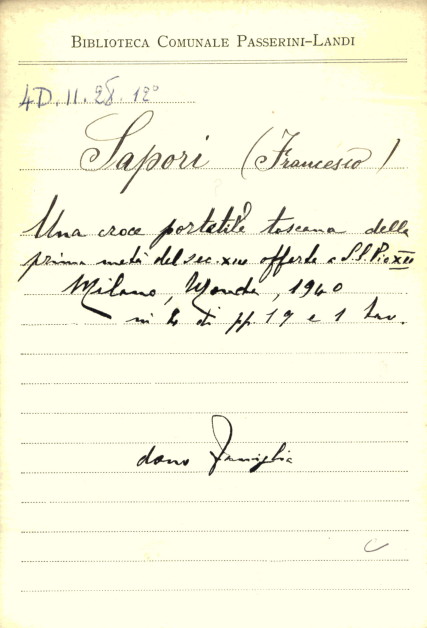 BIBLIOTECA COMUNALE PASSERINI-LANDI
4D.II.28.12°
Sapori (Francesco)
Una croce portatile toscana della
prima metà del sec. XIII offerta a S.S. Pio XII
Milano, 1940
in 4 di pp. 17 e 1 tav.
dono Famiglia